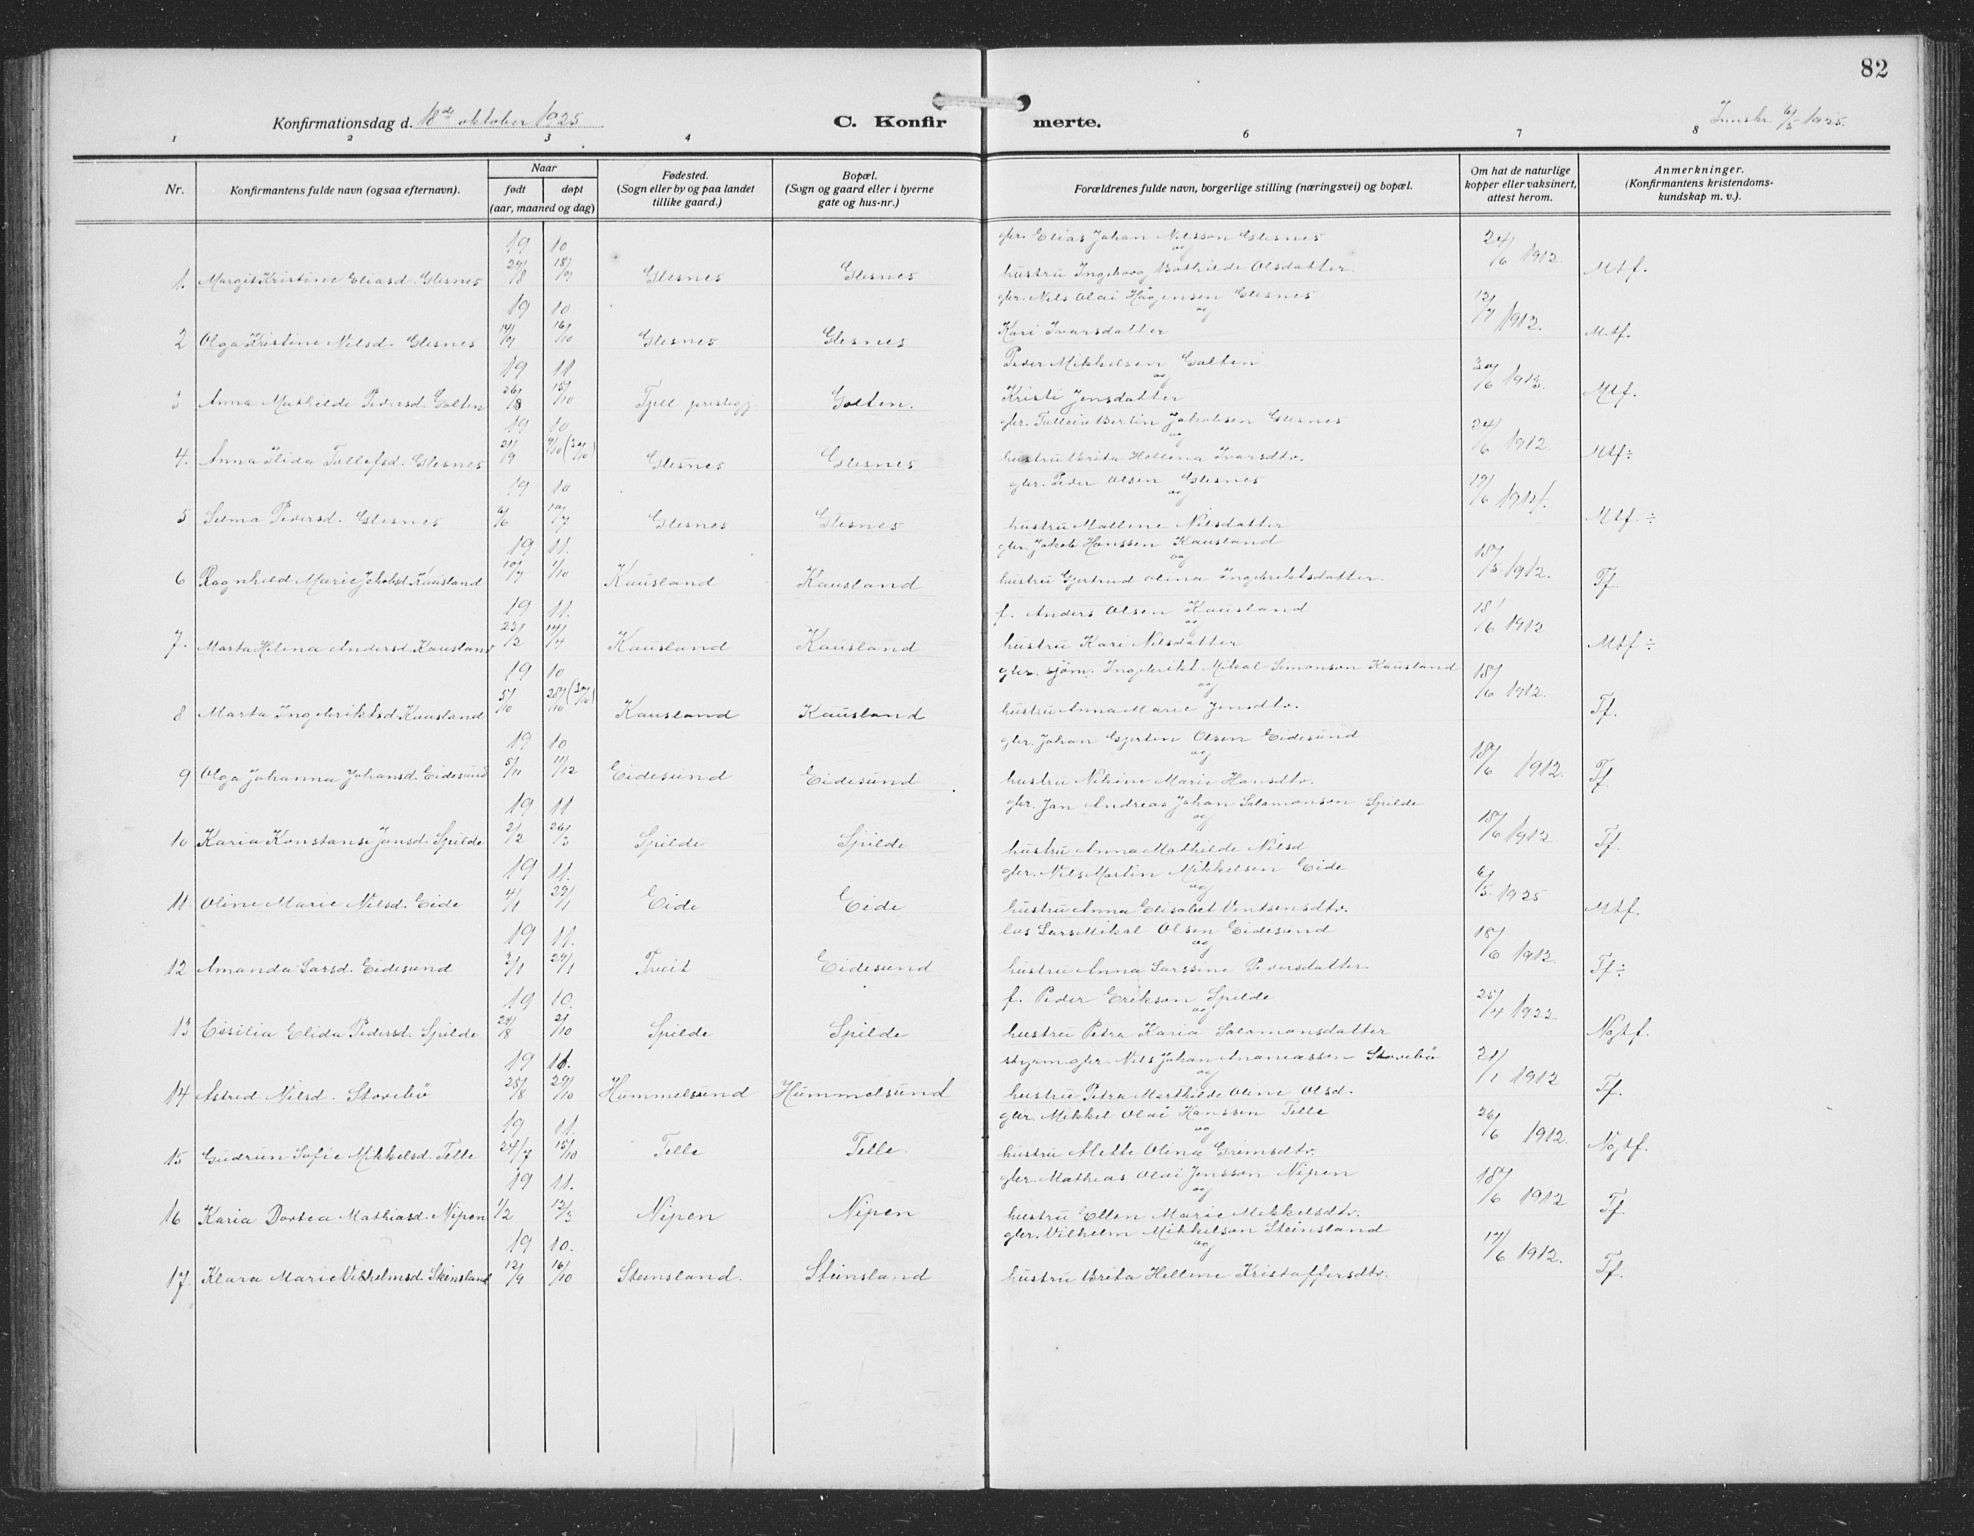 82
Konfirmationsdag d. 18de oktober 1925
C. Konfirmerte.
Innskr. 6/5 1925.
1 2 3 4 6 7 8
Nr.
Konfirmantens fulde navn (ogsaa efternavn).
Naar
født døpt
(aar, maaned og dag)
Fødested.
(Sogn eller by og paa landet
tillike gaard.)
Bopæl.
(Sogn og gaard eller i byerne
gate og hus-nr.)
Forældrenes fulde navn, borgerlige stilling (næringsvei) og bopæl.
Om hat de naturlige
kopper eller vaksinert,
attest herom.
Anmerkninger.
(Konfirmantens kristendoms-
kundskap m. v.).
19 10 gbr. Elias Johan Nilsson Glesnes og
1. Margit Kristine Eliasd. Glesnes 29/8 18/9 Glesnes Glesnes hustru Ingeborg Bothilde Olsdatter. 24/6 1912 Mtf.
19 10 gbr. Nils Olai Hågensen Glesnes og
2 Olga Kristine Nilsd. Glesnes 14/9 16/10 Glesnes Glesnes Kari Ivarsdatter 1912. Mtf.
19 11 Peder Mikkelsen Golten og
3 Anna Mathilde Pedersd. Golten 26/8 15/10 Fjell prestegj. Golten. Kristi Jensdatter 1913. Mtf.
19 10 gbr. Tolleiv Bertin Jakobsen Glesnes og
4. Anna Ilida Tollefsd. Glesnes 21/9 9/10 (30/10) Glesnes Glesnes hustru Brita Hellena Ivarsdtr. 24/6 1912. Mtf ÷
19 10 gbr. Peder Olsen Glesnes og
5 Selma Pedersd. Glesnes 6/6 10/7 Glesnes Glesnes hustru Mallene Nilsdatter 19/6 1914. Mtf. ÷
19 11. gbr. Jakob Hanssen Kausland og
6 Ragnhild Marie Jakobsd. Kausland 10/7 1/10 Kausland Kausland hustru Gjertrud Olina Ingebriktsdatter. 18/5 1912. Tf.
19 11. f. Anders Olsen Kausland og
7. Marta Helena Andersd. Kausland 23/2 14/4 Kausland Kausland hustru Kari Nilsdatter 18/6 1912 Mtf ÷
19 10 gbr. sjøm. Ingebrikt Mikal Simonson Kausland og
8 Marta Ingebriktsd. Kausland 5/10 28/10 (30/10) Kausland Kausland hustru Anna Marie Jensdtr. 18/6 1912. Tf.
19 10 gbr. Johan Gjertin Olsen Eidesund og
9 Olga Johanna Johansd. Eidesund 5/11 11/12 Eidesund Eidesund hustru Nikine Marie Hansdtr. 18/6 1912. Tf.
19 11 gbr. Jan Andreas Johan Salamonson Spilde og
10 Karia Konstanse Jansd. Spilde 2/2 26/3 Spilde Spilde hustru Anna Mathilde Nilsd 18/6 1912. Tf.
19 11. gbr. Nils Martin Mikkelsen Eide og
11 Oline Marie Nilsd. Eide 4/1 29/1 Eide Eide hustru Anna Elisabet Ventsensdtr. 6/5. 1925 Mtf.
19 11. løs Lars Mikal Olsen Eidesund og
12 Amanda Larsd. Eidesund 3/1 29/1 Tveit Eidesund hustru Anna Larssine Pedersdatter 18/6 1912. Tf ÷
19 10. f. Peder Erikson Spilde og
13 Cesilia Elida Pedersd. Spilde 24/8 2/10 Spilde Spilde hustru Petra Karia Salamonsdatter 25/4 1922 Ngtf.
19 11. styrm. gbr. Nils Johan Ananiassen Storebø og
14 Astrid Nilsd. Storebø 25/8 29/10 Hummelsund Hummelsund hustru Petra Marthilde Oline Olsd. 21/1 1912 Tf.
19 11. gbr. Mikkel Olai Hanssen Telle og
15 Gudrun Sofie Mikkelsd. Telle 24/7 15/10 Telle Telle. hustru Alette Olina Grimsdtr. 26/6 1912. Ngtf.
19 11. gbr. Mathias Olai Jenssen Nipen og
16 Karia Dortea Mathiasd. Nipen 1/2 12/3 Nipen Nipen hustru Ellen Marie Mikkelsdtr. 18/6 1912 Tf
19 10. gbr. Vilhelm Mikkelson Steinsland og
17. Klara Marie Vilhelmsd. Steinsland 12/9 16/10 Steinsland. Steinsland hustru Brita Hellene Kristoffersdtr. 19/6 1912. Tf.